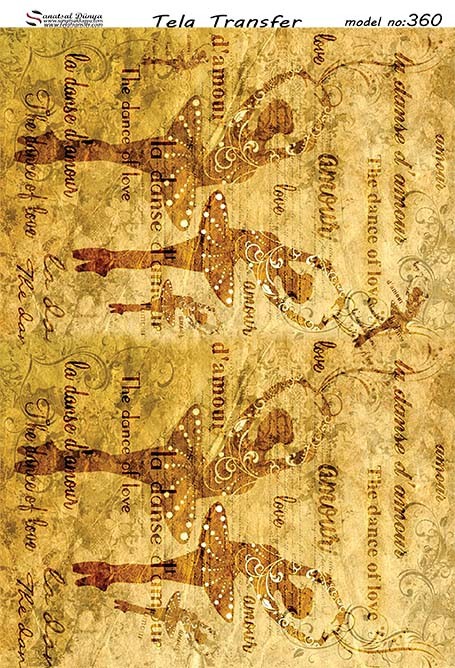 Sanatsal Dünya
Tela Transfer
model no:360
d'amour
love
la danse d'amour
The dance of love
la danse d'amour
The dance of love
la danse d'amour
The dance of love
amour
love
amour
amour
la da
The dan
d'amour
love
la danse d'amour
The dance of love
la danse d'amour
The dance of love
la danse d'amour
The dance of love
amour
love
amour
amour
la da
The dan